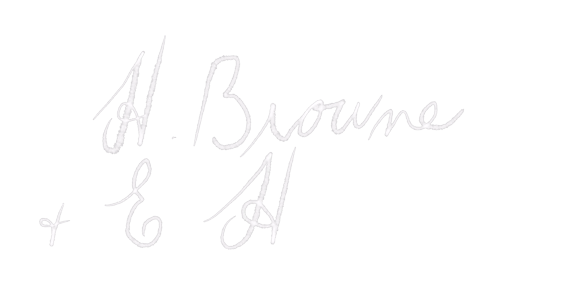 H. Browne
+ E H